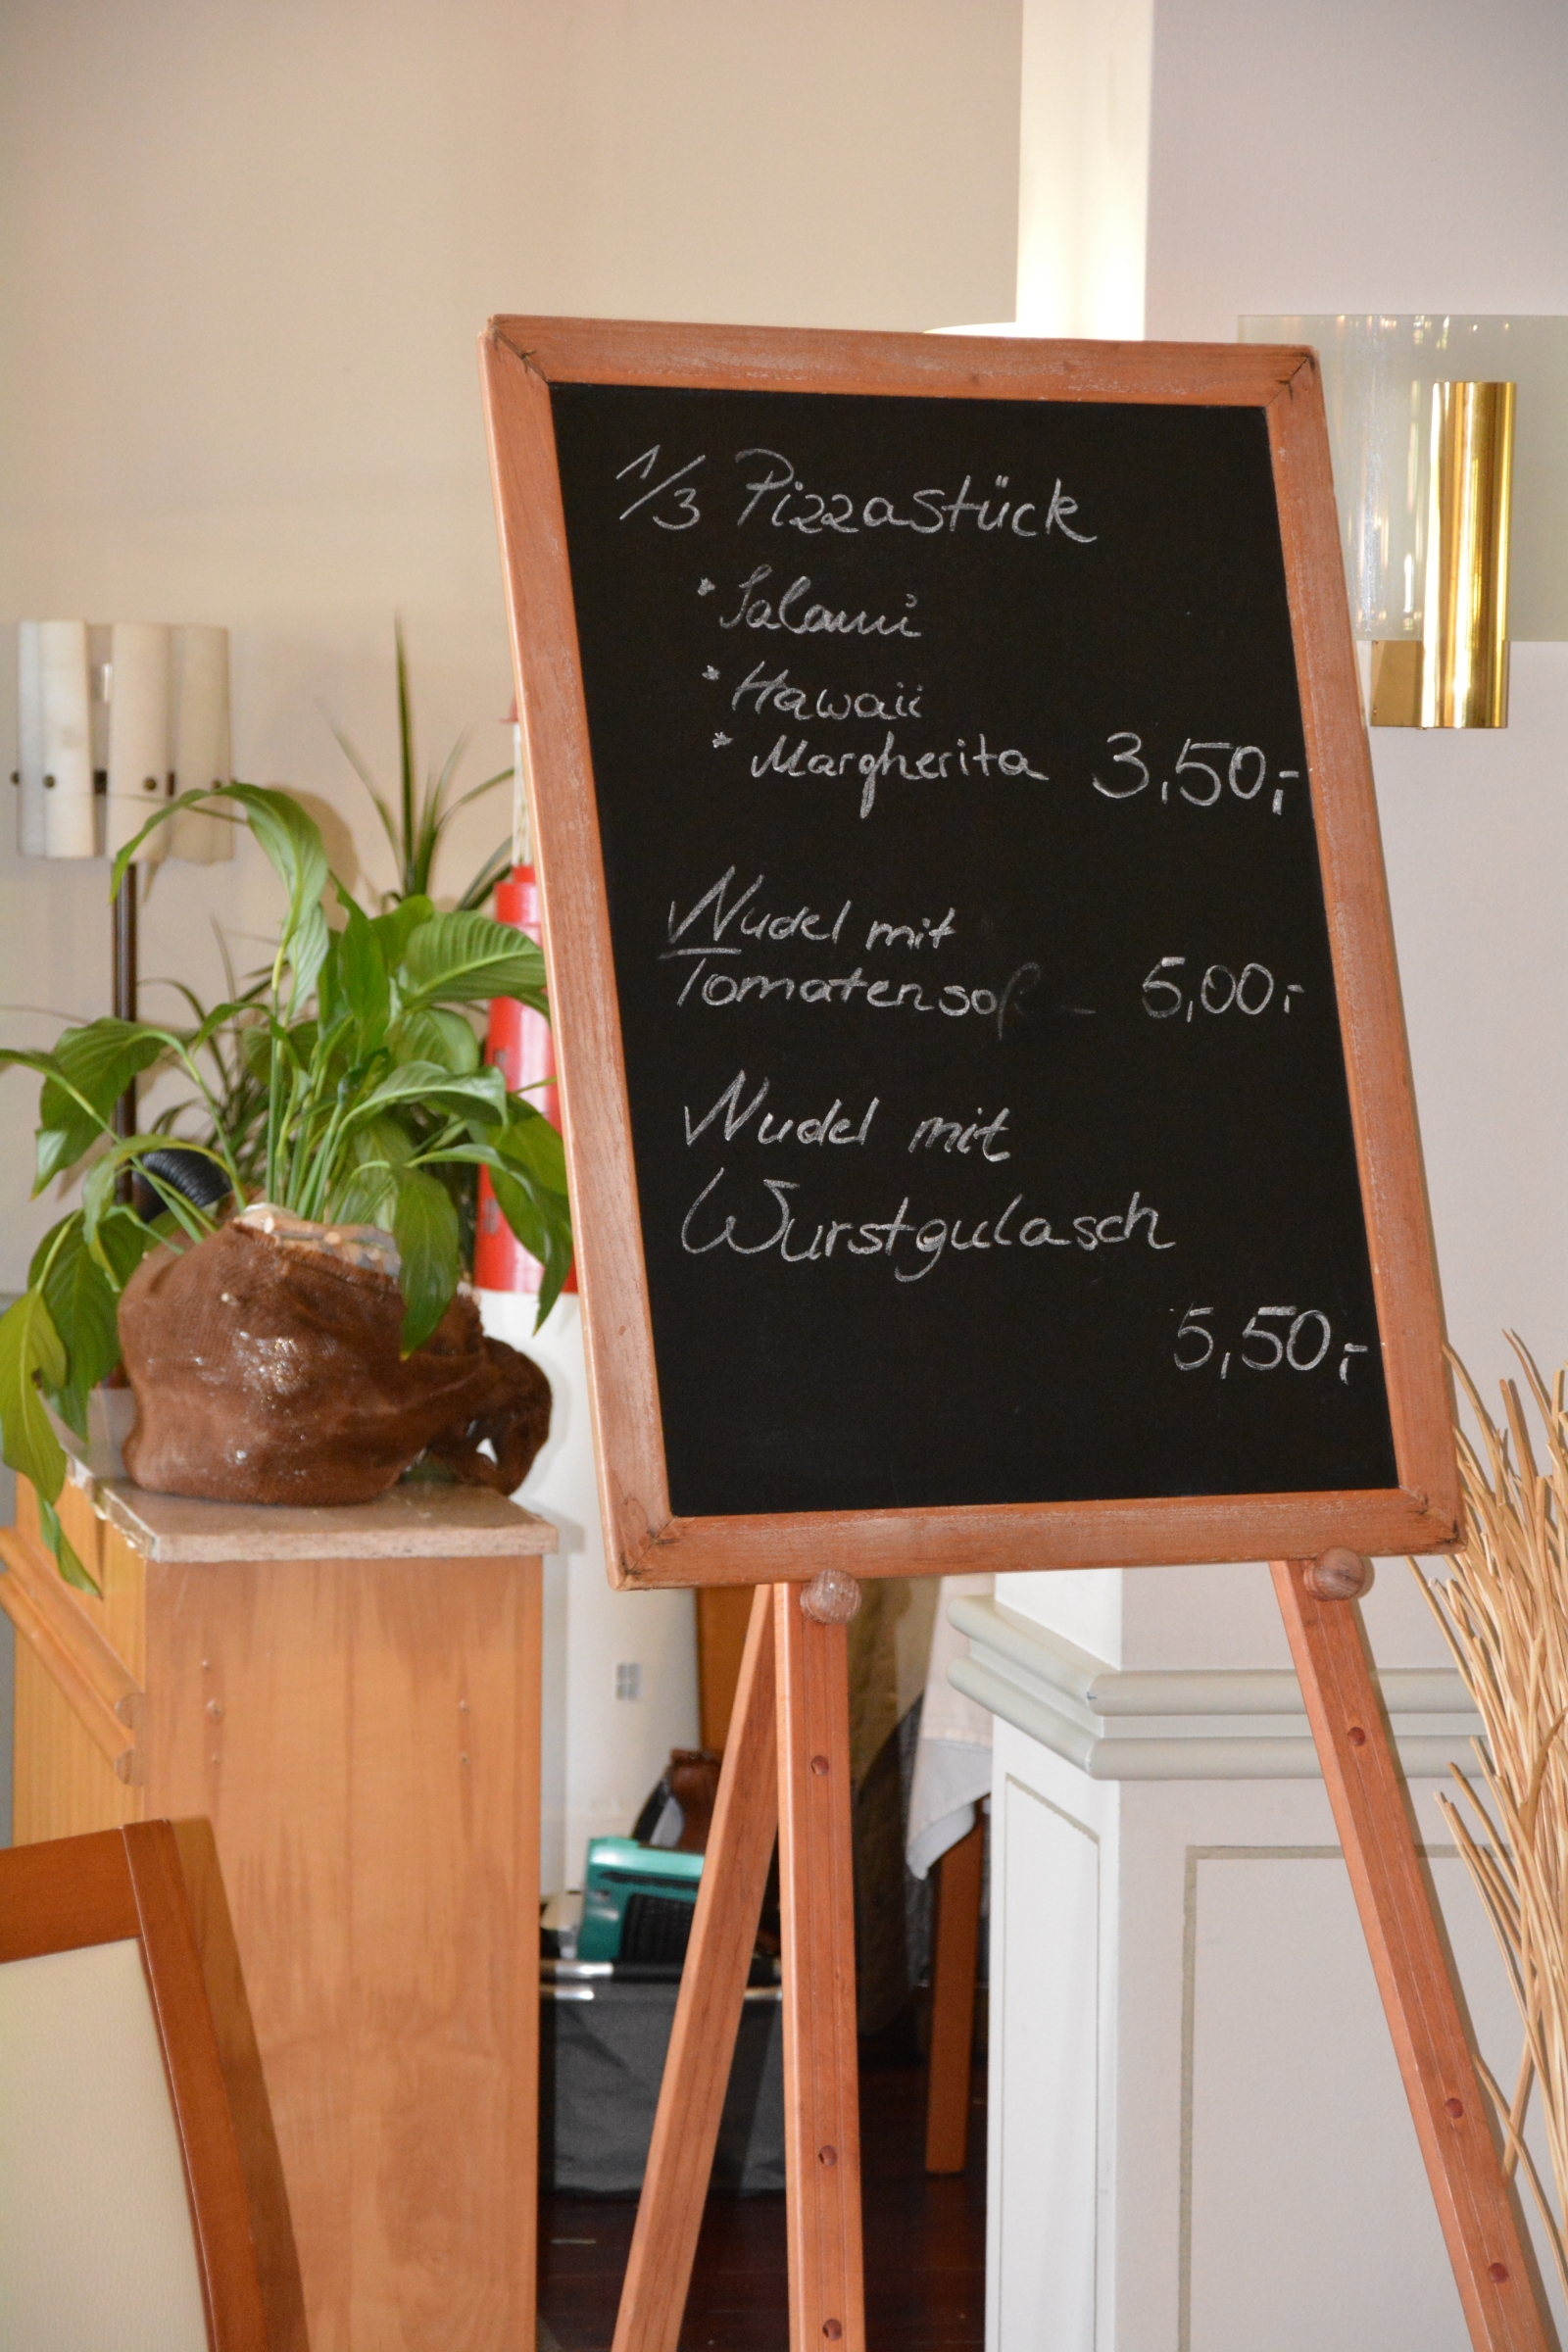 1/3 Pizzastück
* Salami
* Hawaii
* Margherita 3,50,-
Nudel mit
Tomatensoß 5,00,-
Nudel mit
Wurstgulasch
5,50,-